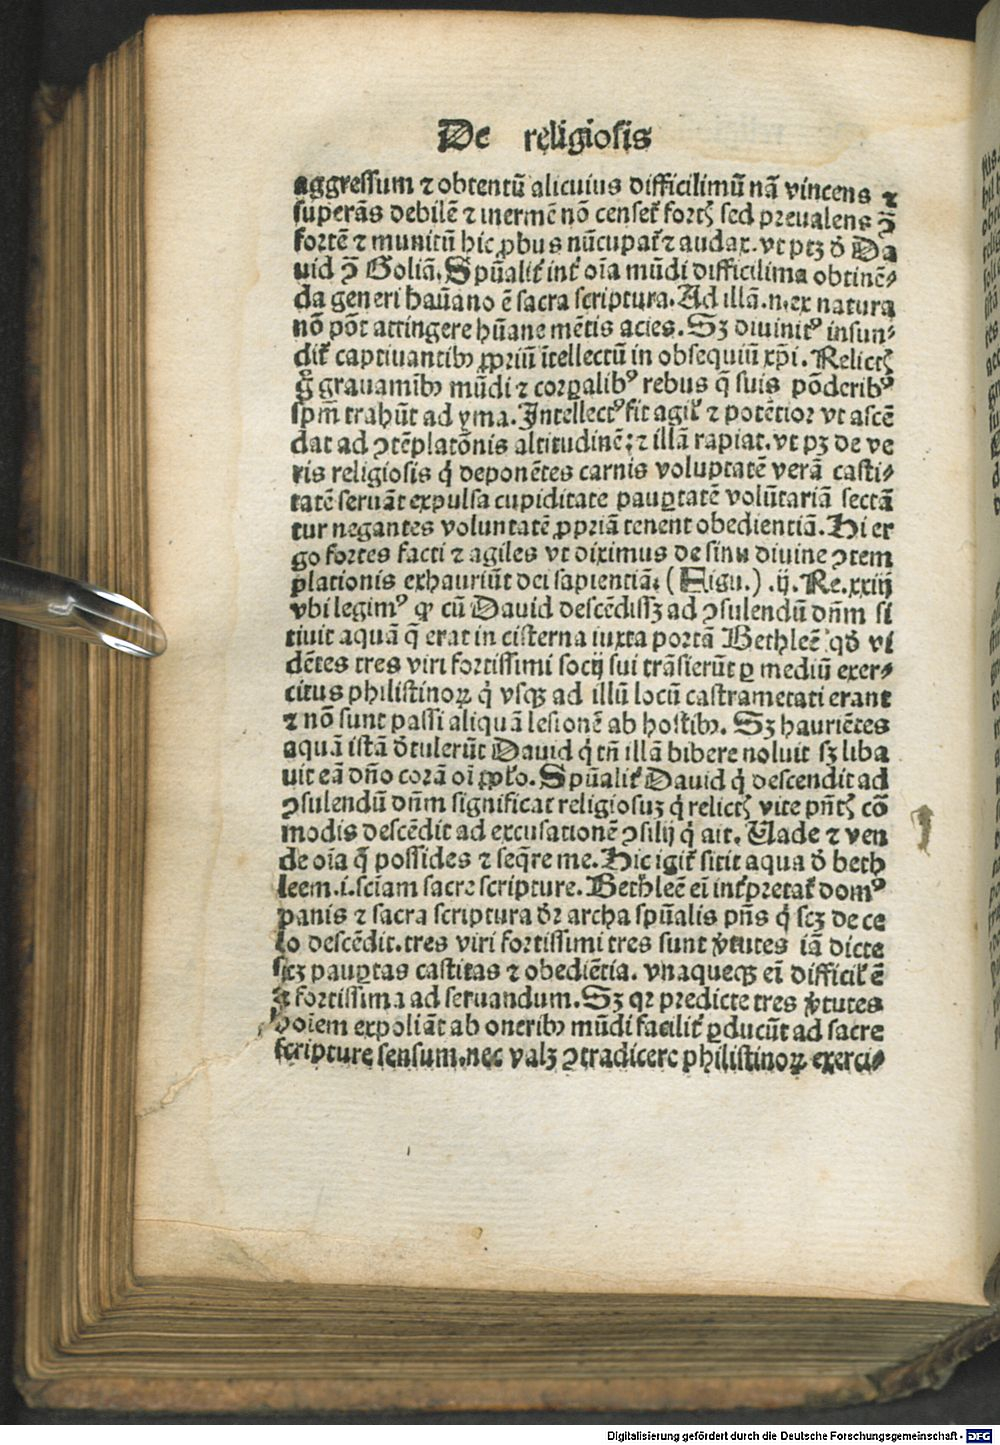 De religiosis
aggressum ⁊ obtentū alicuius difficilimū nā vincens ⁊
superās debilē ⁊ inermē nō censet᷑ fort᷒ sed preualens ꝯ̄
fortē ⁊ munitū hic ꝓbus nūcupat᷑ ⁊ audax. vt ptꝫ ð Da
uid ꝯ̄ Goliā. Spūalit᷑ int᷑ oīa mūdi difficilima obtinē⸗
da generi haūano ē sacra scriptura. Ad illā .n. ex natura
nō pōt attingere hūane mētis acies. Sꝫ diuinitꝰ insun⸗
dit᷑ captiuantibꝰ ꝓpriū ītellectū in obsequiū xp̄i. Relict᷒
gͦ grauamībꝰ mūdi ⁊ corꝑalibꝰ rebus q̄ suis pōderibꝰ
spm̄ trahūt ad yma. Intellectꝰ fit agil᷑ ⁊ potētior vt ascē
dat ad ꝯtēplatōnis altitudinē: ⁊ illā rapiat. vt pꝫ de ve
ris religiosis q̇ deponētes carnis voluptatē verā casti⸗
tatē seruāt expulsa cupiditate pauꝑtatē volūtariā sectā
tur negantes voluntatē ꝓpriā tenent obedientiā. Hi er
go fortes facti ⁊ agiles vt diximus de sinu diuine ꝯtem
plationis exhauriūt dei sapientiā: (Figu.) .ij. Re. xxiij
vbi legimꝰ ꝙ cū Dauid descēdissꝫ ad ꝯsulendū dn̄m si
tiuit aquā q̄ erat in cisterna iuxta portā Bethleē qð vi
dētes tres viri fortissimi socij sui trāsierūt ꝑ mediū exer⸗
citus philistinoꝝ q̇ vsqꝫ ad illū locū castrametati erant
⁊ nō sunt passi aliquā lesionē ab hostibꝰ. Sꝫ hauriētes
aquā istā ðtulerūt Dauid q̇ tn̄ illā bibere noluit sꝫ liba
uit eā dn̄o corā oī ꝓꝑlo. Spūalit᷑ Dauid q̇ descendit ad
ꝯsulendū dn̄m significat religiosuꝫ q̇ relict᷒ vite pn̄t᷒ cō
modis descēdit ad excusationē ꝯsilij q̇ ait. Vade ⁊ ven
de oīa q̄ possides ⁊ seq̄re me. Hic igit᷑ sitit aqua ð beth
leem .i. sciam sacre scripture. Bethleē eī int᷑pretat᷑ domꝰ
panis ⁊ sacra scriptura ðr archa spūalis pn̄s q̇ scꝫ de ce
lo descēdit. tres viri fortissimi tres sunt v̓tutes iā dicte
scꝫ pauꝑtas castitas ⁊ obediētia. vnaqueqꝫ eī difficil᷑ ē
⁊ fortissima ad seruandum. Sꝫ qꝛ predicte tres v̓tutes
hoīem expoliāt ab oneribꝰ mūdi facilit᷑ ꝑducūt ad sacre
scripture sensum. nec valꝫ ꝯtradicere philistinoꝝ exerci⸗
Digitalisierung gefördert durch die Deutsche Forschungsgemeinschaft - DFG